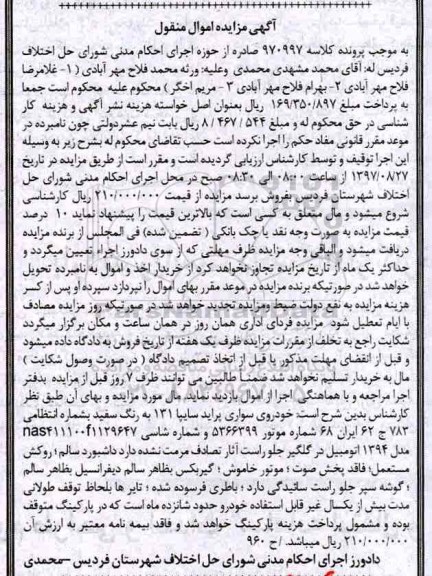 آگهی مزایده اموال منقول
به موجب پرونده کلاسه ۹۷۰۹۹۷ صادره از حوزه اجرای احکام مدنی شورای حل اختلاف
فردیس له: آقای محمد مشهدی محمدی وعلیه: ورثه محمد فلاح مهر آبادی (۱- غلامرضا
فلاح مهر آبادی ۲- بهرام فلاح مهر آبادی ۳- مریم اخگر) محکوم علیه محکوم است جمعا
به پرداخت مبلغ ۱۶۹/۳۵۰/۸۹۷ ریال بعنوان اصل خواسته هزینه نشر آگهی و هزینه کار
شناسی در حق محکوم له و مبلغ ۸/۴۶۷/۵۴۴ ریال بابت نیم عشردولتی چون نامبرده در
موعد مقرر قانونی مفاد حکم را اجرا نکرده است حسب تقاضای محکوم له بشرح زیر به وسیله
این اجرا توقیف و توسط کارشناس ارزیابی گردیده است و مقرر است از طریق مزایده در تاریخ
۱۳۹۷/۰۸/۲۷ از ساعت ۰۸:۰۰ الی ۰۸:۳۰ صبح در محل اجرای احکام مدنی شورای حل
اختلاف شهرستان فردیس بفروش برسد مزایده از قیمت ۲۱۰/۰۰۰/۰۰۰ ریال کارشناسی
شروع میشود و مال متعلق به کسی است که بالاترین قیمت را پیشنهاد نماید ۱۰ درصد
قیمت مزایده به صورت وجه نقد یا چک بانکی (تضمین شده) فی المجلس از برنده مزایده
دریافت میشود و الباقی وجه مزایده ظرف مهلتی که از سوی دادورز اجراء تعیین میگردد و
حداکثر یک ماه از تاریخ مزایده تجاوز نخواهد کرد از خریدار اخذ و اموال به نامبرده تحویل
خواهد شد در صورتیکه برنده مزایده در موعد مقرر بهای اموال را نپردازد سپرده او پس از کسر
هزینه مزایده به نفع دولت ضبط ومزایده تجدید خواهد شد در صورتیکه روز مزایده مصادف
با ایام تعطیل شود مزایده فردای اداری همان روز در همان ساعت و مکان برگزار میگردد
شکایت راجع به تخلف از مقررات مزایده ظرف یک هفته از تاریخ فروش به دادگاه داده میشود
و قبل از انقضای مهلت مذکور یا قبل از اتخاذ تصمیم دادگاه (در صورت وصول شکایت)
مال به خریدار تسلیم نخواهد شد ضمنا طالبین می توانند ظرف ۷ روز قبل از مزایده بدفتر
اجرا مراجعه و با هماهنگی اجرا از اموال بازدید نماید مال مورد مزایده و بهای آن طبق نظر
کارشناس بدین شرح است: خودروی سواری پراید سایپا ۱۳۱ به رنگ سفید بشماره انتظامی
۷۸۳ ج ۶۲ ایران ۶۸ شماره موتور ۵۳۶۶۳۹۹ و شماره شاسی nas۴۱۱۱۰۰f۱۱۲۹۶۴۷
مدل ۱۳۹۴ اتومبیل در گلگیر جلو راست آثار تصادف مرمت نشده دارد داشبورد سالم؛ روکش
مستعمل؛ فاقد پخش صوت؛ موتور خاموش؛ گیربکس بظاهر سالم دیفرانسیل بظاهر سالم
؛ گوشه سپر جلو راست سائیدگی دارد؛ باطری فرسوده شده؛ تایر ها بلحاظ توقف طولانی
مدت بیش از یکسال غیر قابل استفاده خودرو حدود شانزده ماه است که در پارکینگ متوقف
بوده و مشمول پرداخت هزینه پارکینگ خواهد شد و فاقد بیمه نامه معتبر به ارزش آن
۲۱۰/۰۰۰/۰۰۰ ریال میباشد. /ح ۹۶۰
دادورز اجرای احکام مدنی شورای حل اختلاف شهرستان فردیس –محمدی